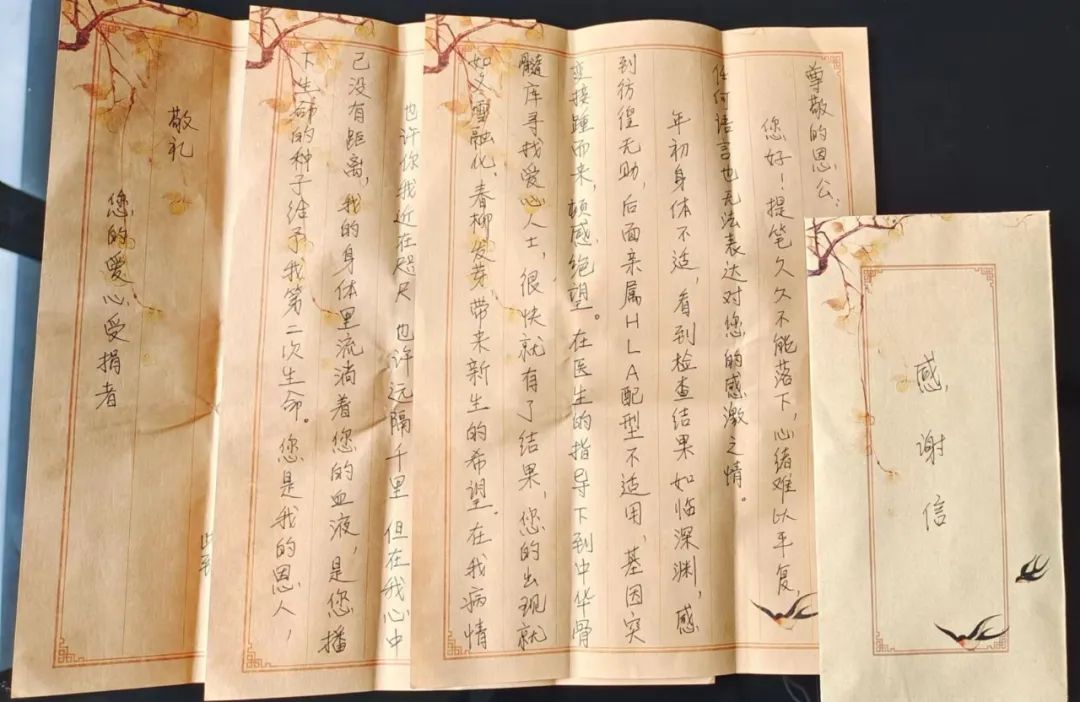 尊敬的恩公:
您好!提笔久久不能落下,心绪难以平复,
任何语言也无法表达对您的感激之情。
年初身体不适,看到检查结果如临深渊,感
到彷徨无助,后面亲属HLA配型不适用,基因突
变接踵而来,顿感绝望。在医生的指导下到中华骨
髓库寻找爱心人士,很快就有了结果,您的出现就
如冬雪融化,春柳发芽,带来新生的希望。在我病情
也许你我近在咫尺 也许远隔千里 但在我心中
己没有距离,我的身体里流淌着您的血液,是您播
下生命的种子给予我第二次生命。您是我的恩人,
此致
敬礼
您的爱心受捐者
感谢信